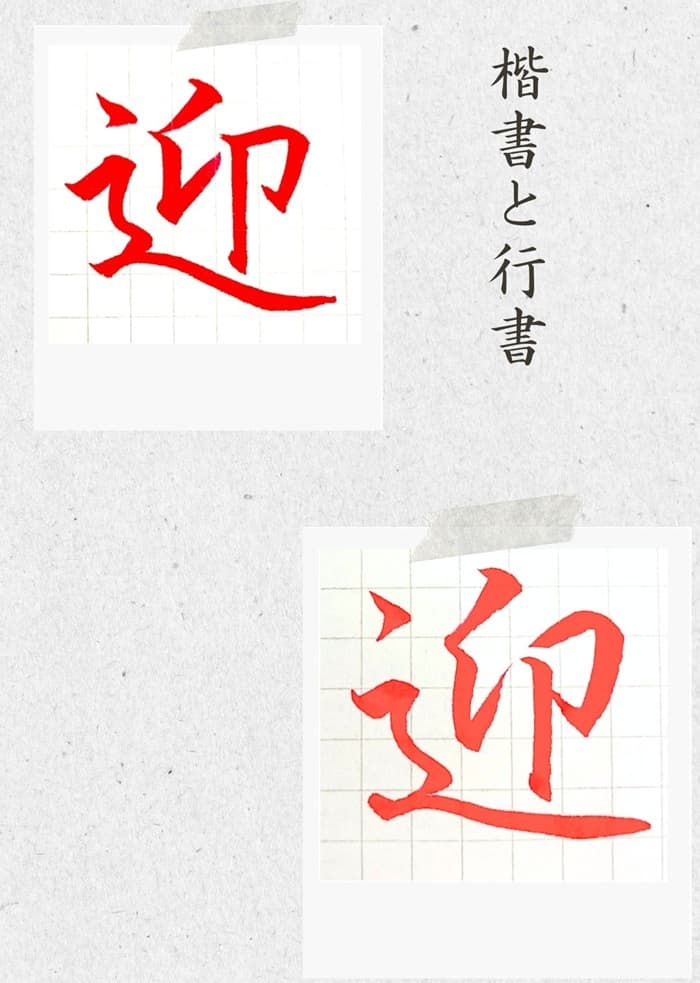 楷書と行書
迎
迎